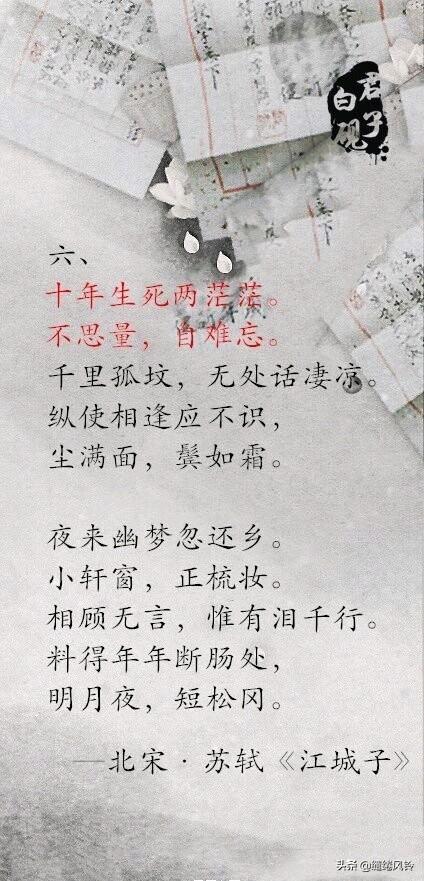 君子
白砚
六、
十年生死两茫茫。
不思量，自难忘。
千里孤坟，无处话凄凉。
纵使相逢应不识，
尘满面，鬓如霜。
夜来幽梦忽还乡。
小轩窗，正梳妆。
相顾无言，惟有泪千行。
料得年年断肠处，
明月夜，短松冈。
—北宋·苏轼《江城子》
头条@缱绻风铃